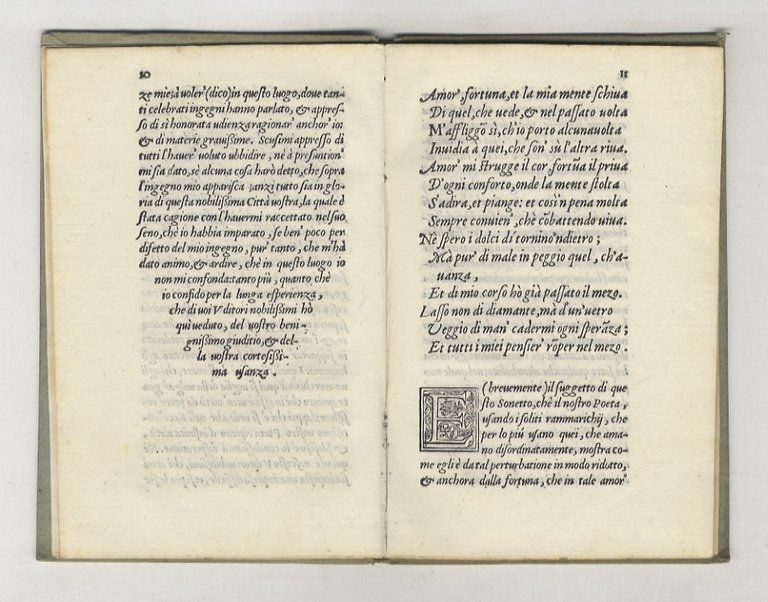 10
ze mie: à voler' (dico) in questo luogo, doue tan-
ti celebrati ingegni hanno parlato, & appres-
so di sì honorata udienza ragionar' anchor' io:
& di materie grauissime. Scusimi appresso di
tutti l'hauer' voluto ubbidire, nè à presuntion'
mi sia dato, sè alcuna cosa harò detto, che sopra
l'ingegno mio apparisca: anzi tutto sia in glo-
ria di questa nobilissima Città vostra, la quale è
stata cagione con l'hauermi raccettato nel suo
seno, chè io habbia imparato, se ben' poco per
difetto del mio ingegno, pur' tanto, che m'hà
dato animo, & ardire, chè in questo luogo io
non mi confonda: tanto più, quanto chè
io confido per la lunga esperienza,
che di uoi Vditori nobilissimi hò
quì veduto, del vostro beni-
gnissimo giuditio, & del-
la vostra cortesissi-
ma usanza.
11
Amor, fortuna, et la mia mente schiua
Di quel, che vede, & nel passato volta
M'affliggõ sì, ch'io porto alcuna uolta
Inuidia à quei, che son' sù l'altra riua.
Amor mi strugge il cor, fortũa il priua
D'ogni conforto, onde la mente stolta
S'adira, et piange: et così n pena molta
Sempre conuien', chè cõbattendo uiua.
Nè spero i dolci dì tornino ndietro;
Mà pur' di male in peggio quel, ch'a-
uanza,
Et di mio corso hò già passato il mezo.
Lasso non di diamante, mà d'un'uetro
Veggio di man' cadermi ogni sperãza;
Et tutti i miei pensier' rõper nel mezo.
E (brevemente) il suggetto di que
sto Sonetto, chè il nostro Poeta,
usando i soliti rammarichij, che
per lo più usano quei, che ama-
no disordinatamente, mostra co-
me egli è da tal perturbatione in modo ridotto,
& anchora dalla fortuna, che in tale amor